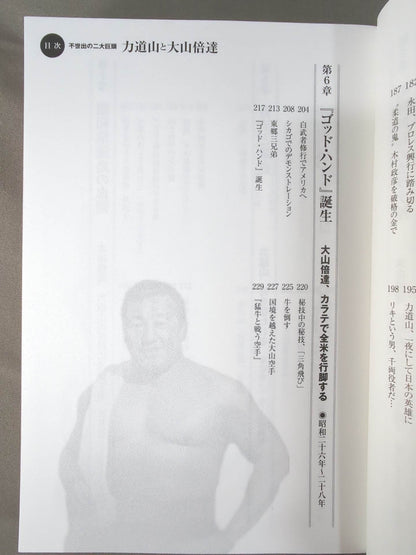 目次 不世出の二大巨頭 力道山と大山倍達
187 永田、プロレス興行に踏み切る
“柔道の鬼”木村政彦を破格の金で
195 力道山、一夜にして日本の英雄に
198 リキという男、千両役者だ…
第6章 『ゴッド・ハンド』誕生 大山倍達、カラテで全米を行脚する ●昭和二十六年〜二十八年
204 白武者修行でアメリカへ
208 シカゴでのデモンストレーション
213 東郷三兄弟
217 『ゴッド・ハンド』誕生
220 秘技中の秘技、「三角飛び」
225 牛を倒す
227 国境を越えた大山空手
229 『猛牛と戦う空手』